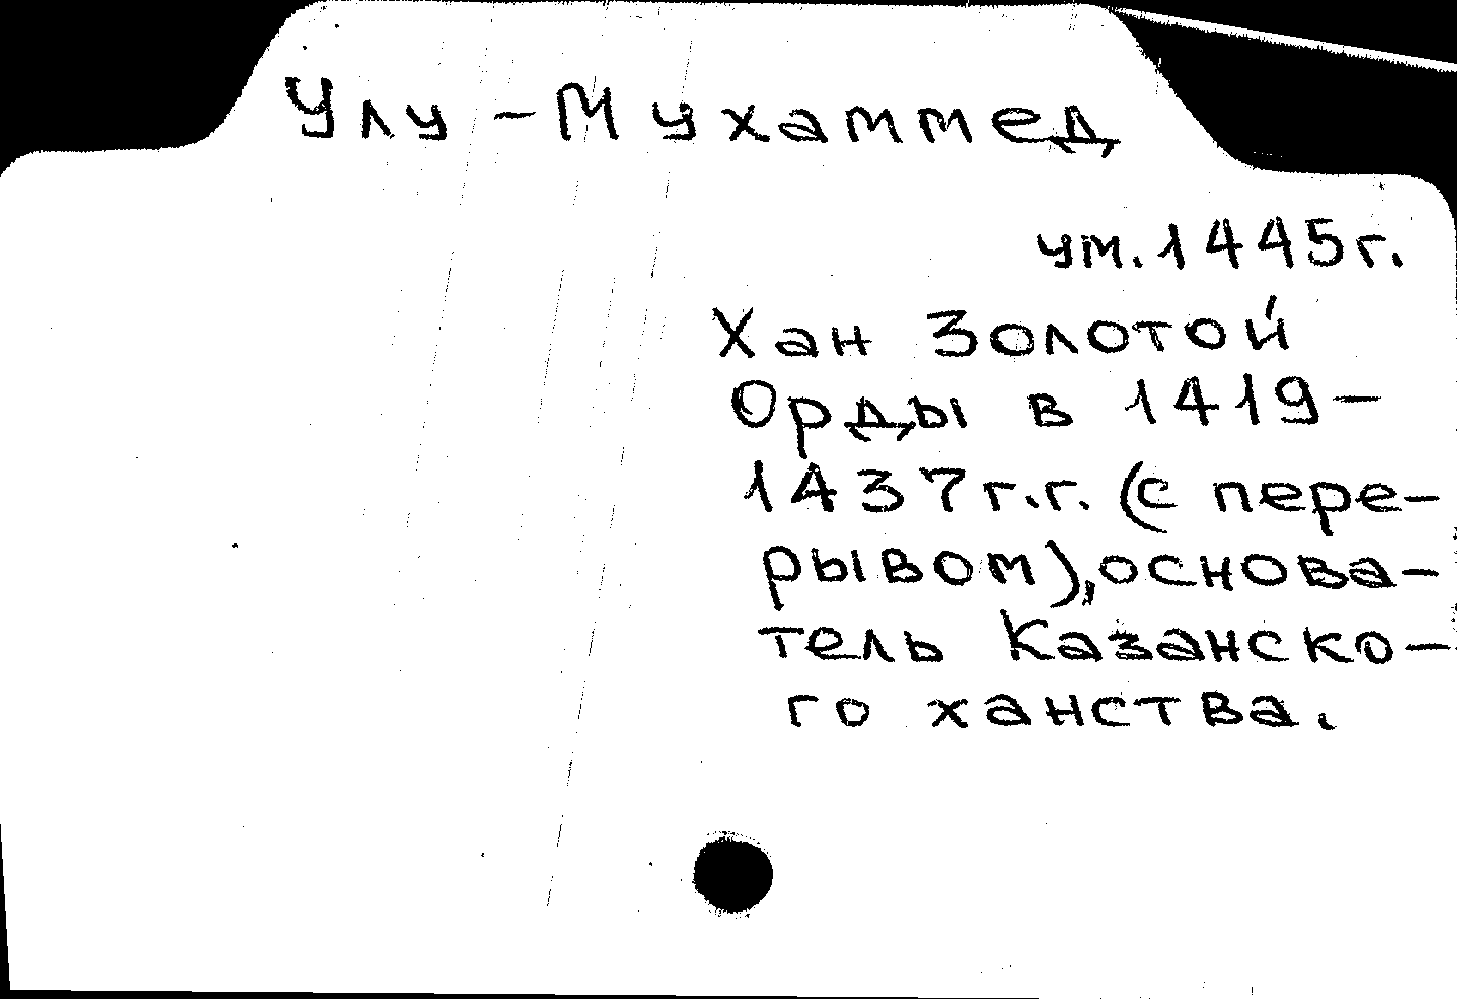 Улу-Мухаммед
ум. 1445 г.
Хан Золотой
Орды в 1419-
1437 г.г. (с пере-
рывом), основа-
тель Казанско-
го ханства.